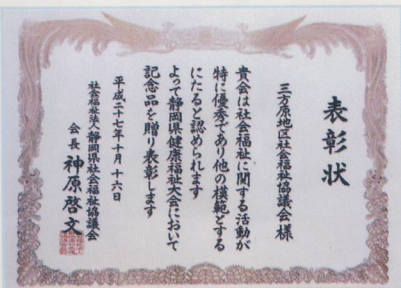 表彰状
三方原地区社会福祉協議会様
貴会は社会福祉に関する活動が
特に優秀であり他の模範とする
にたると認められます
よって静岡県健康福祉大会において
記念品を贈り表彰します
平成二十七年十月十六日
社会福祉法人静岡県社会福祉協議会
会長 神原啓文